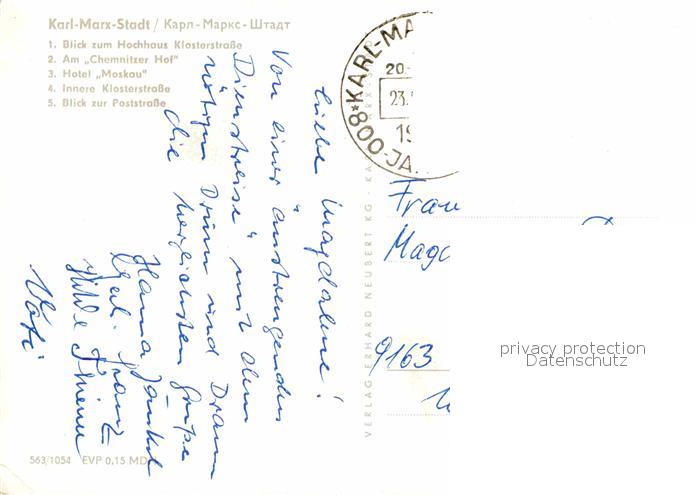 Karl-Marx-Stadt / Карл-Маркс-Штадт
1. Blick zum Hochhaus Klosterstraße
2. Am „Chemnitzer Hof"
3. Hotel „Moskau"
4. Innere Klosterstraße
5. Blick zur Poststraße
Liebe Magdalene!
Von einer "anstrengenden
Dienstreise" mit dem
nötigen Drum und Dran
die herzlichsten Grüße
Hanna
Hilde
563/1054 EVP 0,15 MD
VERLAG ERHARD NEUBERT KG · KA
800*KARL-MA
20-
23.
19
800-JA
Frau
Magd
9163
privacy protection
Datenschutz